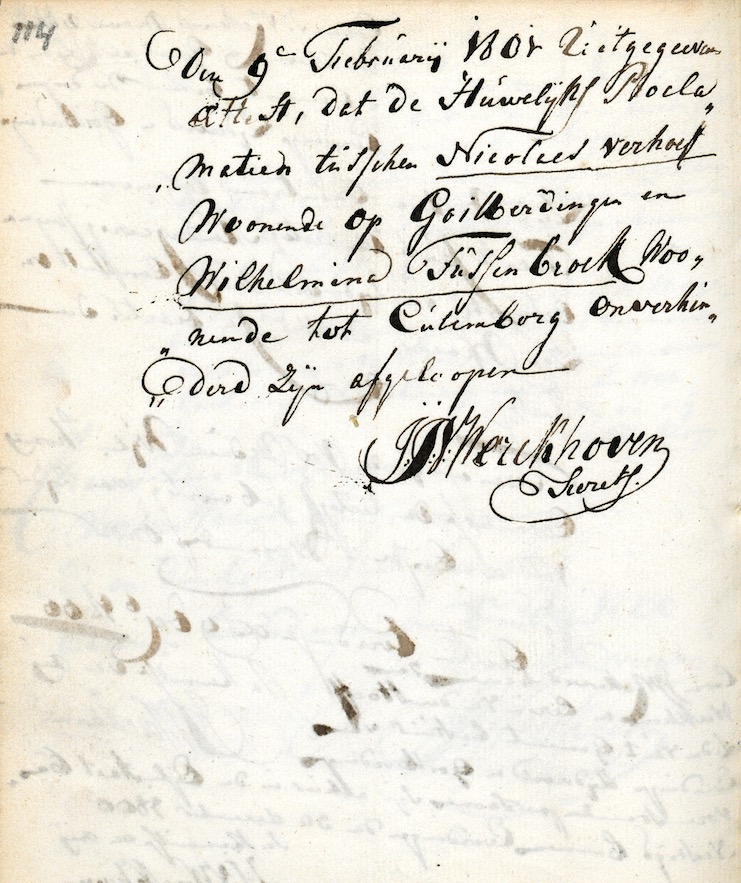 114
Den 9e Februarij 1801 Uitgegeeven
attest, dat de Huwelijks Procla„
„matien tusschen Nicolaes verhoef
Woonende op Goilberdingen en
Wilhelmina Tussenbroek Woo„
„nende tot Culemborg onverhin„
„derd zijn afgeloopen
J:D: Werckhoven
Secrets.